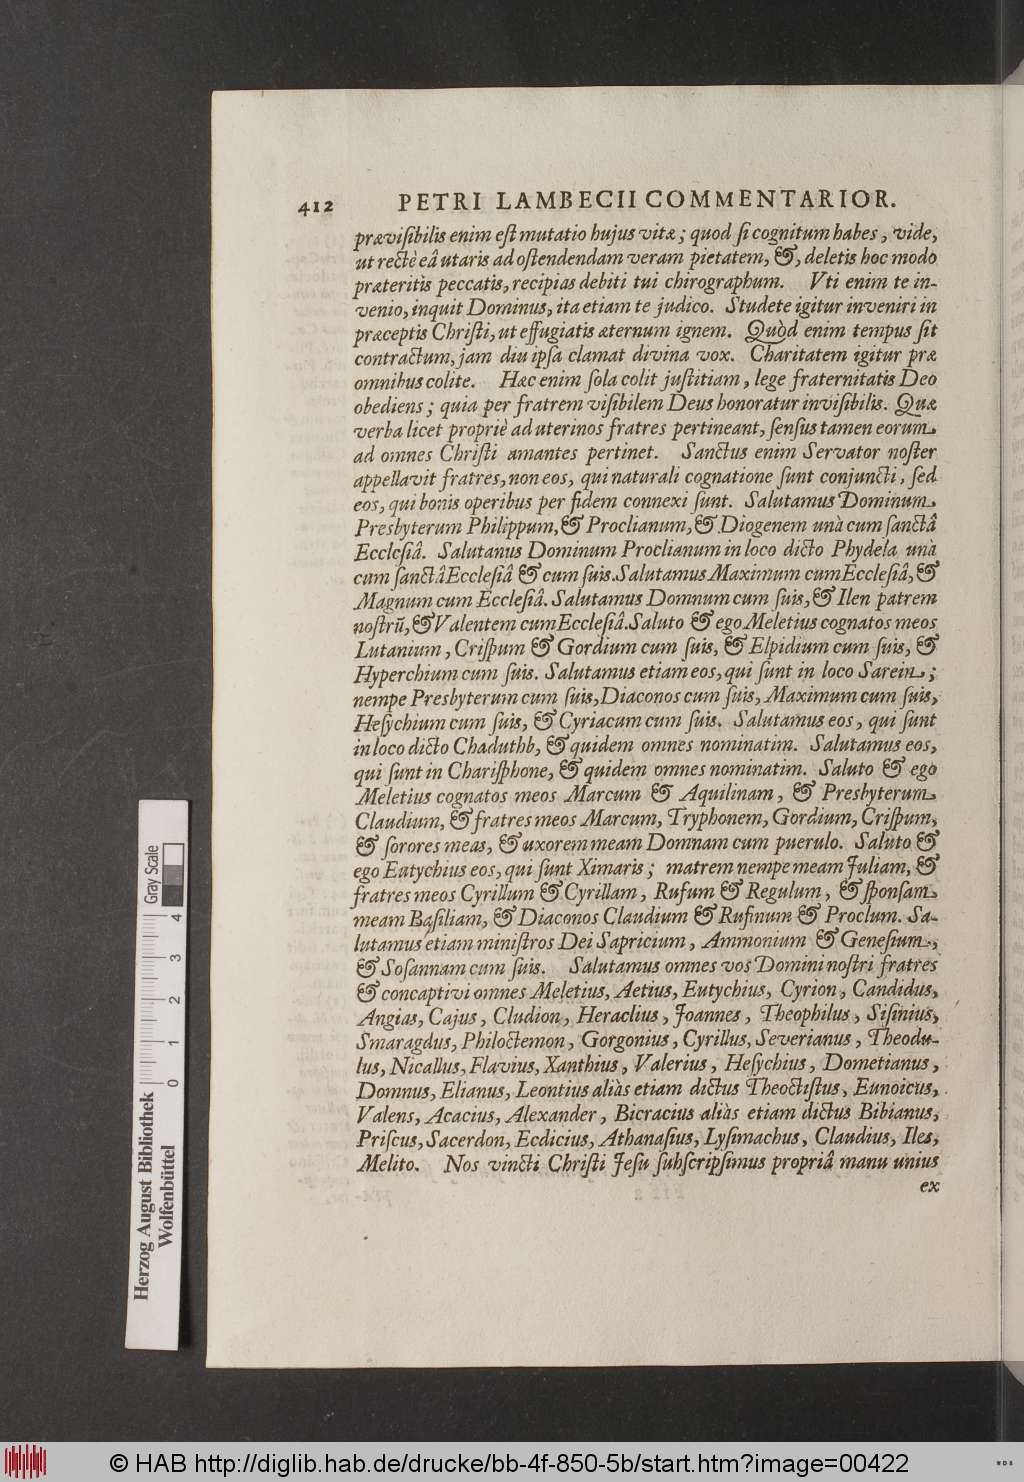 412 PETRI LAMBECII COMMENTARIOR.
prævisibilis enim est mutatio hujus vitæ; quod si cognitum habes, vide,
ut rectè eâ utaris ad ostendendam veram pietatem, &, deletis hoc modo
præteritis peccatis, recipias debiti tui chirographum. Vti enim te in-
venio, inquit Dominus, ita etiam te judico. Studete igitur inveniri in
præceptis Christi, ut effugiatis æternum ignem. Quòd enim tempus sit
contractum, jam diu ipsa clamat divina vox. Charitatem igitur præ
omnibus colite. Hæc enim sola colit justitiam, lege fraternitatis Deo
obediens; quia per fratrem visibilem Deus honoratur invisibilis. Quæ
verba licet propriè ad uterinos fratres pertineant, sensus tamen eorum
ad omnes Christi amantes pertinet. Sanctus enim Servator noster
appellavit fratres, non eos, qui naturali cognatione sunt conjuncti, sed
eos, qui bonis operibus per fidem connexi sunt. Salutamus Dominum
Presbyterum Philippum, & Proclianum, & Diogenem unà cum sanctâ
Ecclesiâ. Salutanus Dominum Proclianum in loco dicto Phydela unà
cum sanctâ Ecclesiâ & cum suis. Salutamus Maximum cum Ecclesiâ, &
Magnum cum Ecclesiâ. Salutamus Domnum cum suis, & Ilen patrem
nostrũ, & Valentem cum Ecclesiâ. Saluto & ego Meletius cognatos meos
Lutanium, Crispum & Gordium cum suis, & Elpidium cum suis, &
Hyperchium cum suis. Salutamus etiam eos, qui sunt in loco Sarein;
nempe Presbyterum cum suis, Diaconos cum suis, Maximum cum suis,
Hesychium cum suis, & Cyriacum cum suis. Salutamus eos, qui sunt
in loco dicto Chaduthb, & quidem omnes nominatim. Salutamus eos,
qui sunt in Charisphone, & quidem omnes nominatim. Saluto & ego
Meletius cognatos meos Marcum & Aquilinam, & Presbyterum
Claudium, & fratres meos Marcum, Tryphonem, Gordium, Crispum,
& sorores meas, & uxorem meam Domnam cum puerulo. Saluto &
ego Eutychius eos, qui sunt Ximaris; matrem nempe meam Juliam, &
fratres meos Cyrillum & Cyrillam, Rufum & Regulum, & sponsam
meam Basiliam, & Diaconos Claudium & Rufinum & Proclum. Sa-
lutamus etiam ministros Dei Sapricium, Ammonium & Genesium,
& Sosannam cum suis. Salutamus omnes vos Domini nostri fratres
& concaptivi omnes Meletius, Aetius, Eutychius, Cyrion, Candidus,
Angias, Cajus, Cludion, Heraclius, Joannes, Theophilus, Sisinius,
Smaragdus, Philoctemon, Gorgonius, Cyrillus, Severianus, Theodu-
lus, Nicallus, Flavius, Xanthius, Valerius, Hesychius, Dometianus,
Domnus, Elianus, Leontius aliàs etiam dictus Theoctistus, Eunoicus,
Valens, Acacius, Alexander, Bicracius aliàs etiam dictus Bibianus,
Priscus, Sacerdon, Ecdicius, Athanasius, Lysimachus, Claudius, Iles,
Melito. Nos vincti Christi Jesu subscripsimus propriâ manu unius
ex
Herzog August Bibliothek
Wolfenbüttel
0 1 2 3 4
Gray Scale
© HAB http://diglib.hab.de/drucke/bb-4f-850-5b/start.htm?image=00422